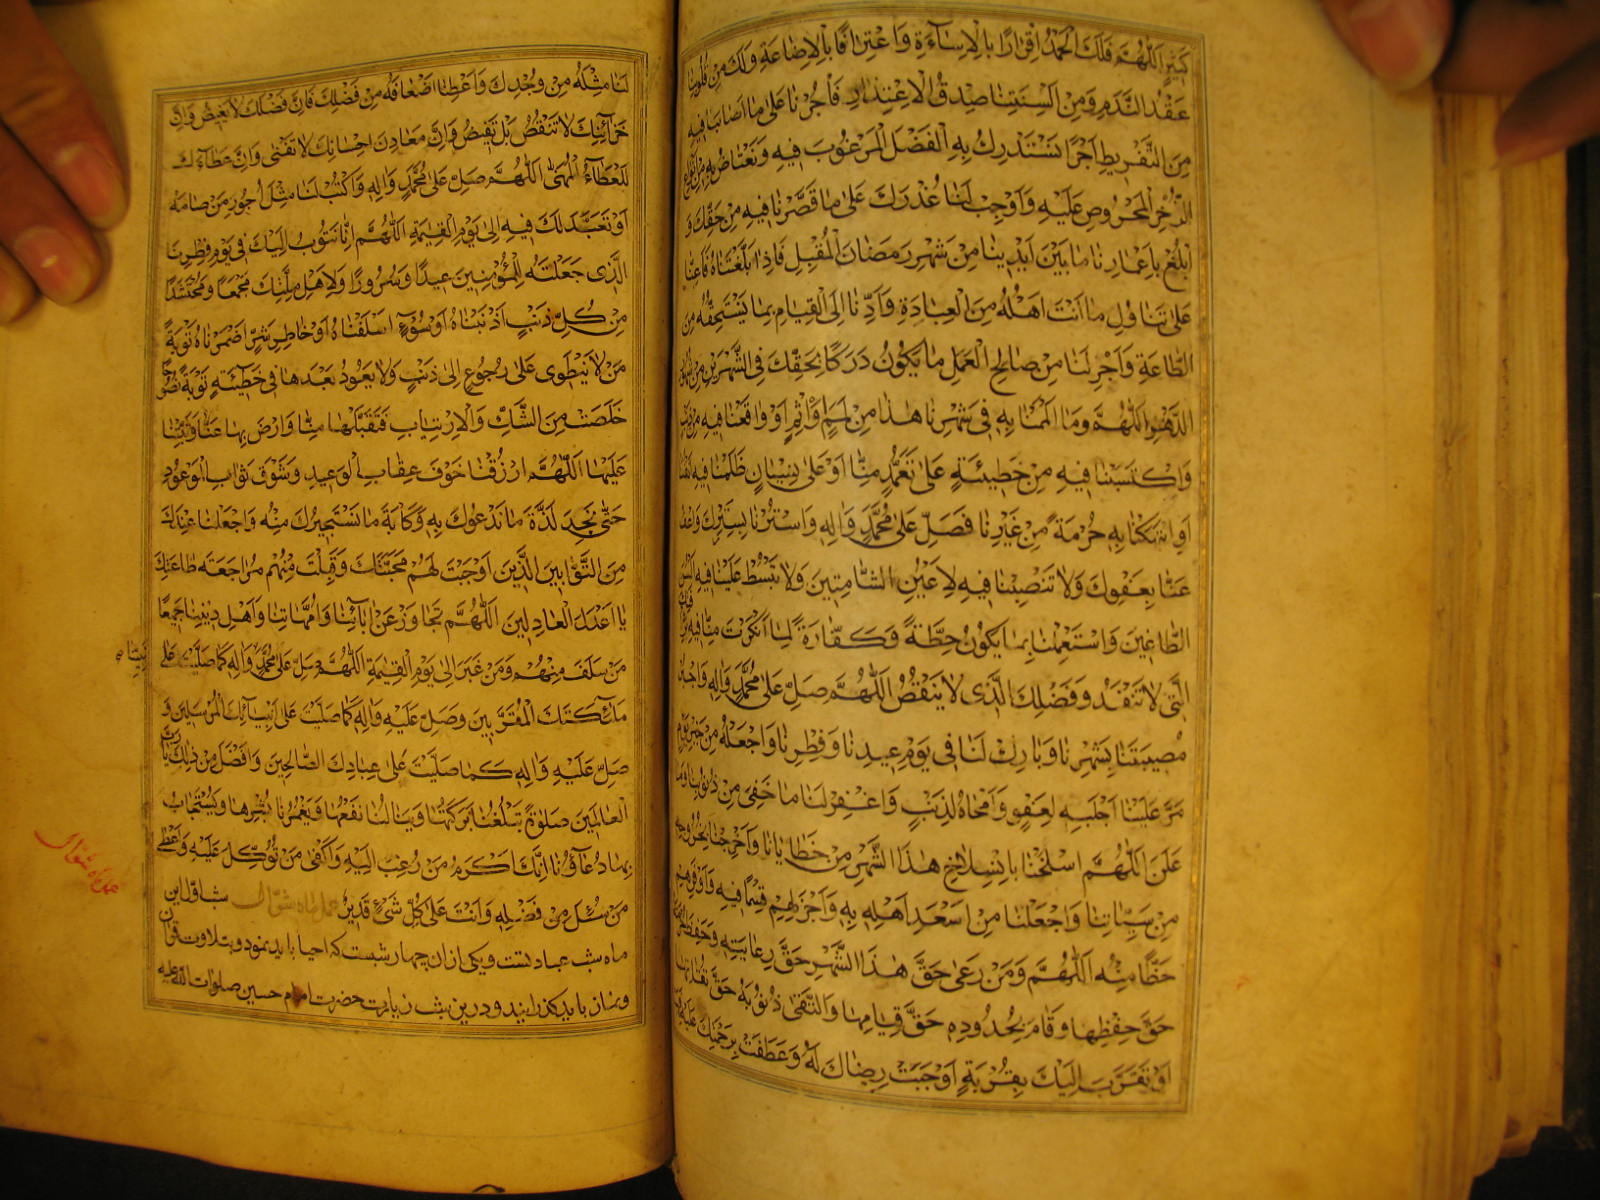 كثير اللّهمّ فلك الحمد اقرارًا بالاساءة واعترافًا بالاضاعة ولك من قلوبنا
عقد النّدم ومن السنتنا صدق الاعتذار فأجرنا على ما اصابنا فيه
من التّفريط اجرًا نستدرك به الفضل المرغوب فيه ونعتاض به من انواع
الذّخر المحروص عليه واوجب لنا عذرك على ما قصّرنا فيه من حقّك و
ابلغ باعمارنا ما بين ايدينا من شهر رمضان المقبل فاذا بلّغتناه فاعنّا
على تناول ما انت اهله من العبادة وادّنا الى القيام بما يستحقّه من
الطّاعة واجر لنا من صالح العمل ما يكون دركا لحقّك فى الشّهرين من شهور
الدّهر اللّهمّ وما الممنا به فى شهرنا هذا من لمم او اثم او واقعنا فيه من ذنب
واكتسبنا فيه من خطيئة على تعمّد منّا او على نسيان ظلمنا فيه انفسنا
او انتهكنا به حرمة من غيرنا فصلّ على محمّد واله واسترنا بسترك واعف
عنّا بعفوك ولا تنصبنا فيه لاعين الشّامتين ولا تبسط علينا فيه السن
الطّاغين واستعملنا بما يكون حطّة وكفّارة لما انكرت منّا فيه برأفتك
الّتى لا تنفد وفضلك الّذى لا ينقص اللّهمّ صلّ على محمّد واله واجبر
مصيبتنا بشهرنا وبارك لنا فى يوم عيدنا وفطرنا واجعله من خير يوم
مرّ علينا اجلبه لعفو وامحاه لذنب واغفر لنا ما خفى من ذنوبنا وما
علن اللّهمّ اسلخنا بانسلاخ هذا الشّهر من خطايانا واخرجنا بخروجه
من سيّئاتنا واجعلنا من اسعد اهله به واجزلهم قسمًا فيه واوفرهم
حظّا منه اللّهمّ ومن رعى حقّ هذا الشّهر حقّ رعايته وحفظ حرمته
حقّ حفظها وقام بحدوده حقّ قيامها واتّقى ذنوبه حقّ تقاتها
او تقرّب اليك بقربة اوجبت رضاك له وعطفت برحمتك عليه فهب
لنا مثله من وجدك واعطنا اضعافه من فضلك فانّ فضلك لا يغيض وانّ
خزائنك لا تنقص بل تفيض وانّ معادن احسانك لا تفنى وانّ عطاءك
للعطاء المهنّى اللّهمّ صلّ على محمّد واله واكتب لنا مثل اجور من صامه
او تعبّد لك فيه الى يوم القيمة اللّهمّ انّا نتوب اليك فى يوم فطرنا
الّذى جعلته للمؤمنين عيدًا وسرورًا ولاهل ملّتك مجمعا ومحتشدًا
من كلّ ذنب اذنبناه او سوء اسلفناه او خاطر شرّ اضمرناه توبة
من لا ينطوى على رجوع الى ذنب ولا يعود بعدها فى خطيئة توبة نصوحا
خلصت من الشّكّ والارتياب فتقبّلها منّا وارض بها عنّا وثبّتنا
عليها اللّهمّ ارزقنا خوف عقاب الوعيد وشوق ثواب الموعود
حتّى نجد لذّة ما ندعوك به وكابة ما نستجيرك منه واجعلنا عندك
من التّوّابين الّذين اوجبت لهم محبّتك وقبلت منهم مراجعة طاعتك
يا اعدل العادلين اللّهمّ تجاوز عن ابائنا وامّهاتنا واهل ديننا جميعًا
من سلف منهم ومن غبر الى يوم القيمة اللّهمّ صلّ على محمّد نبيّنا واله كما صلّيت على
ملائكتك المقرّبين وصلّ عليه واله كما صلّيت على انبيائك المرسلين و
صلّ عليه واله كما صلّيت على عبادك الصّالحين وافضل من ذلك يا ربّ
العالمين صلوة تبلغنا بركتها وينالنا نفعها ويغمرنا بشرها ويستجاب
بها دعاؤنا انّك اكرم من رغب اليه واكفى من توكّل عليه واعطى
من سئل من فضله وانت على كلّ شىء قدير عمل ماه شوّال شب اوّل اين
ماه شب عبادتست ويكى از ان چهار شبست كه احيا بايد نمود وبتلاوت قران
ونماز بايد گذرانيد ودرين شب زيارت حضرت امام حسين صلوات الله عليه
عمل ماه شوّال